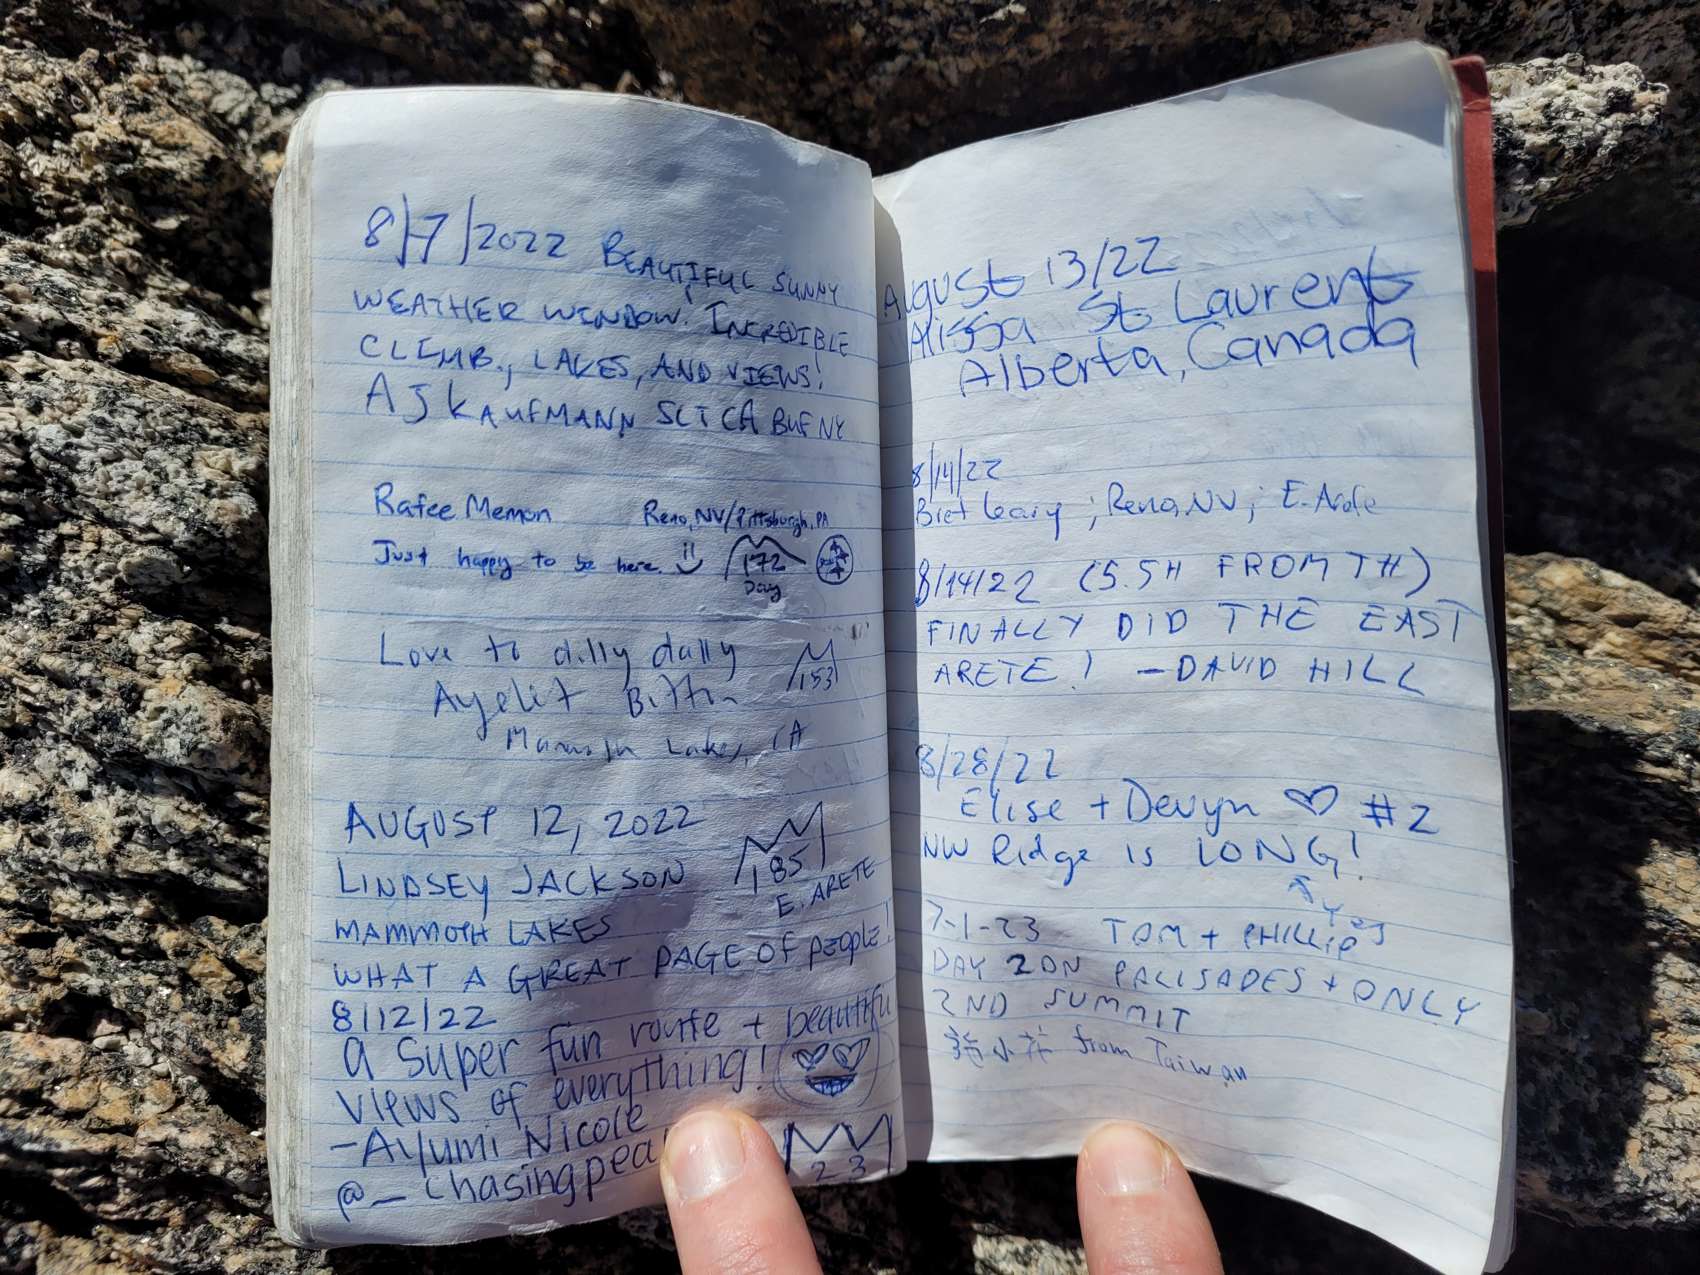 8/7/2022 BEAUTIFUL SUNNY
WEATHER WINDOW! INCREDIBLE
CLIMB, LAKES, AND VIEWS!
AJ KAUFMANN SLT CA BUF NY
Rafee Memon Reno, NV/Pittsburgh, PA
Just happy to be here :) 172
Day
Love to dilly dally
153
Ayelet Bitton
Mammoth Lakes, CA
AUGUST 12, 2022
LINDSEY JACKSON 185
E. ARETE
MAMMOTH LAKES
WHAT A GREAT PAGE OF people!
8/12/22
a super fun route + beautiful
views of everything!
-Ayumi Nicole
@_chasingpea
23
August 13/22
Alissa St Laurent
Alberta, Canada
8/14/22
Bret Leary ; Reno, NV ; E. Arete
8/14/22 (5.5H FROM TH)
FINALLY DID THE EAST
ARETE! - DAVID HILL
8/28/22
Elise + Devyn ♡ #2
NW Ridge is LONG!
Yes
7-1-23 TOM + PHILLIP
DAY 2 ON PALISADES + ONLY
2ND SUMMIT
from Taiwan